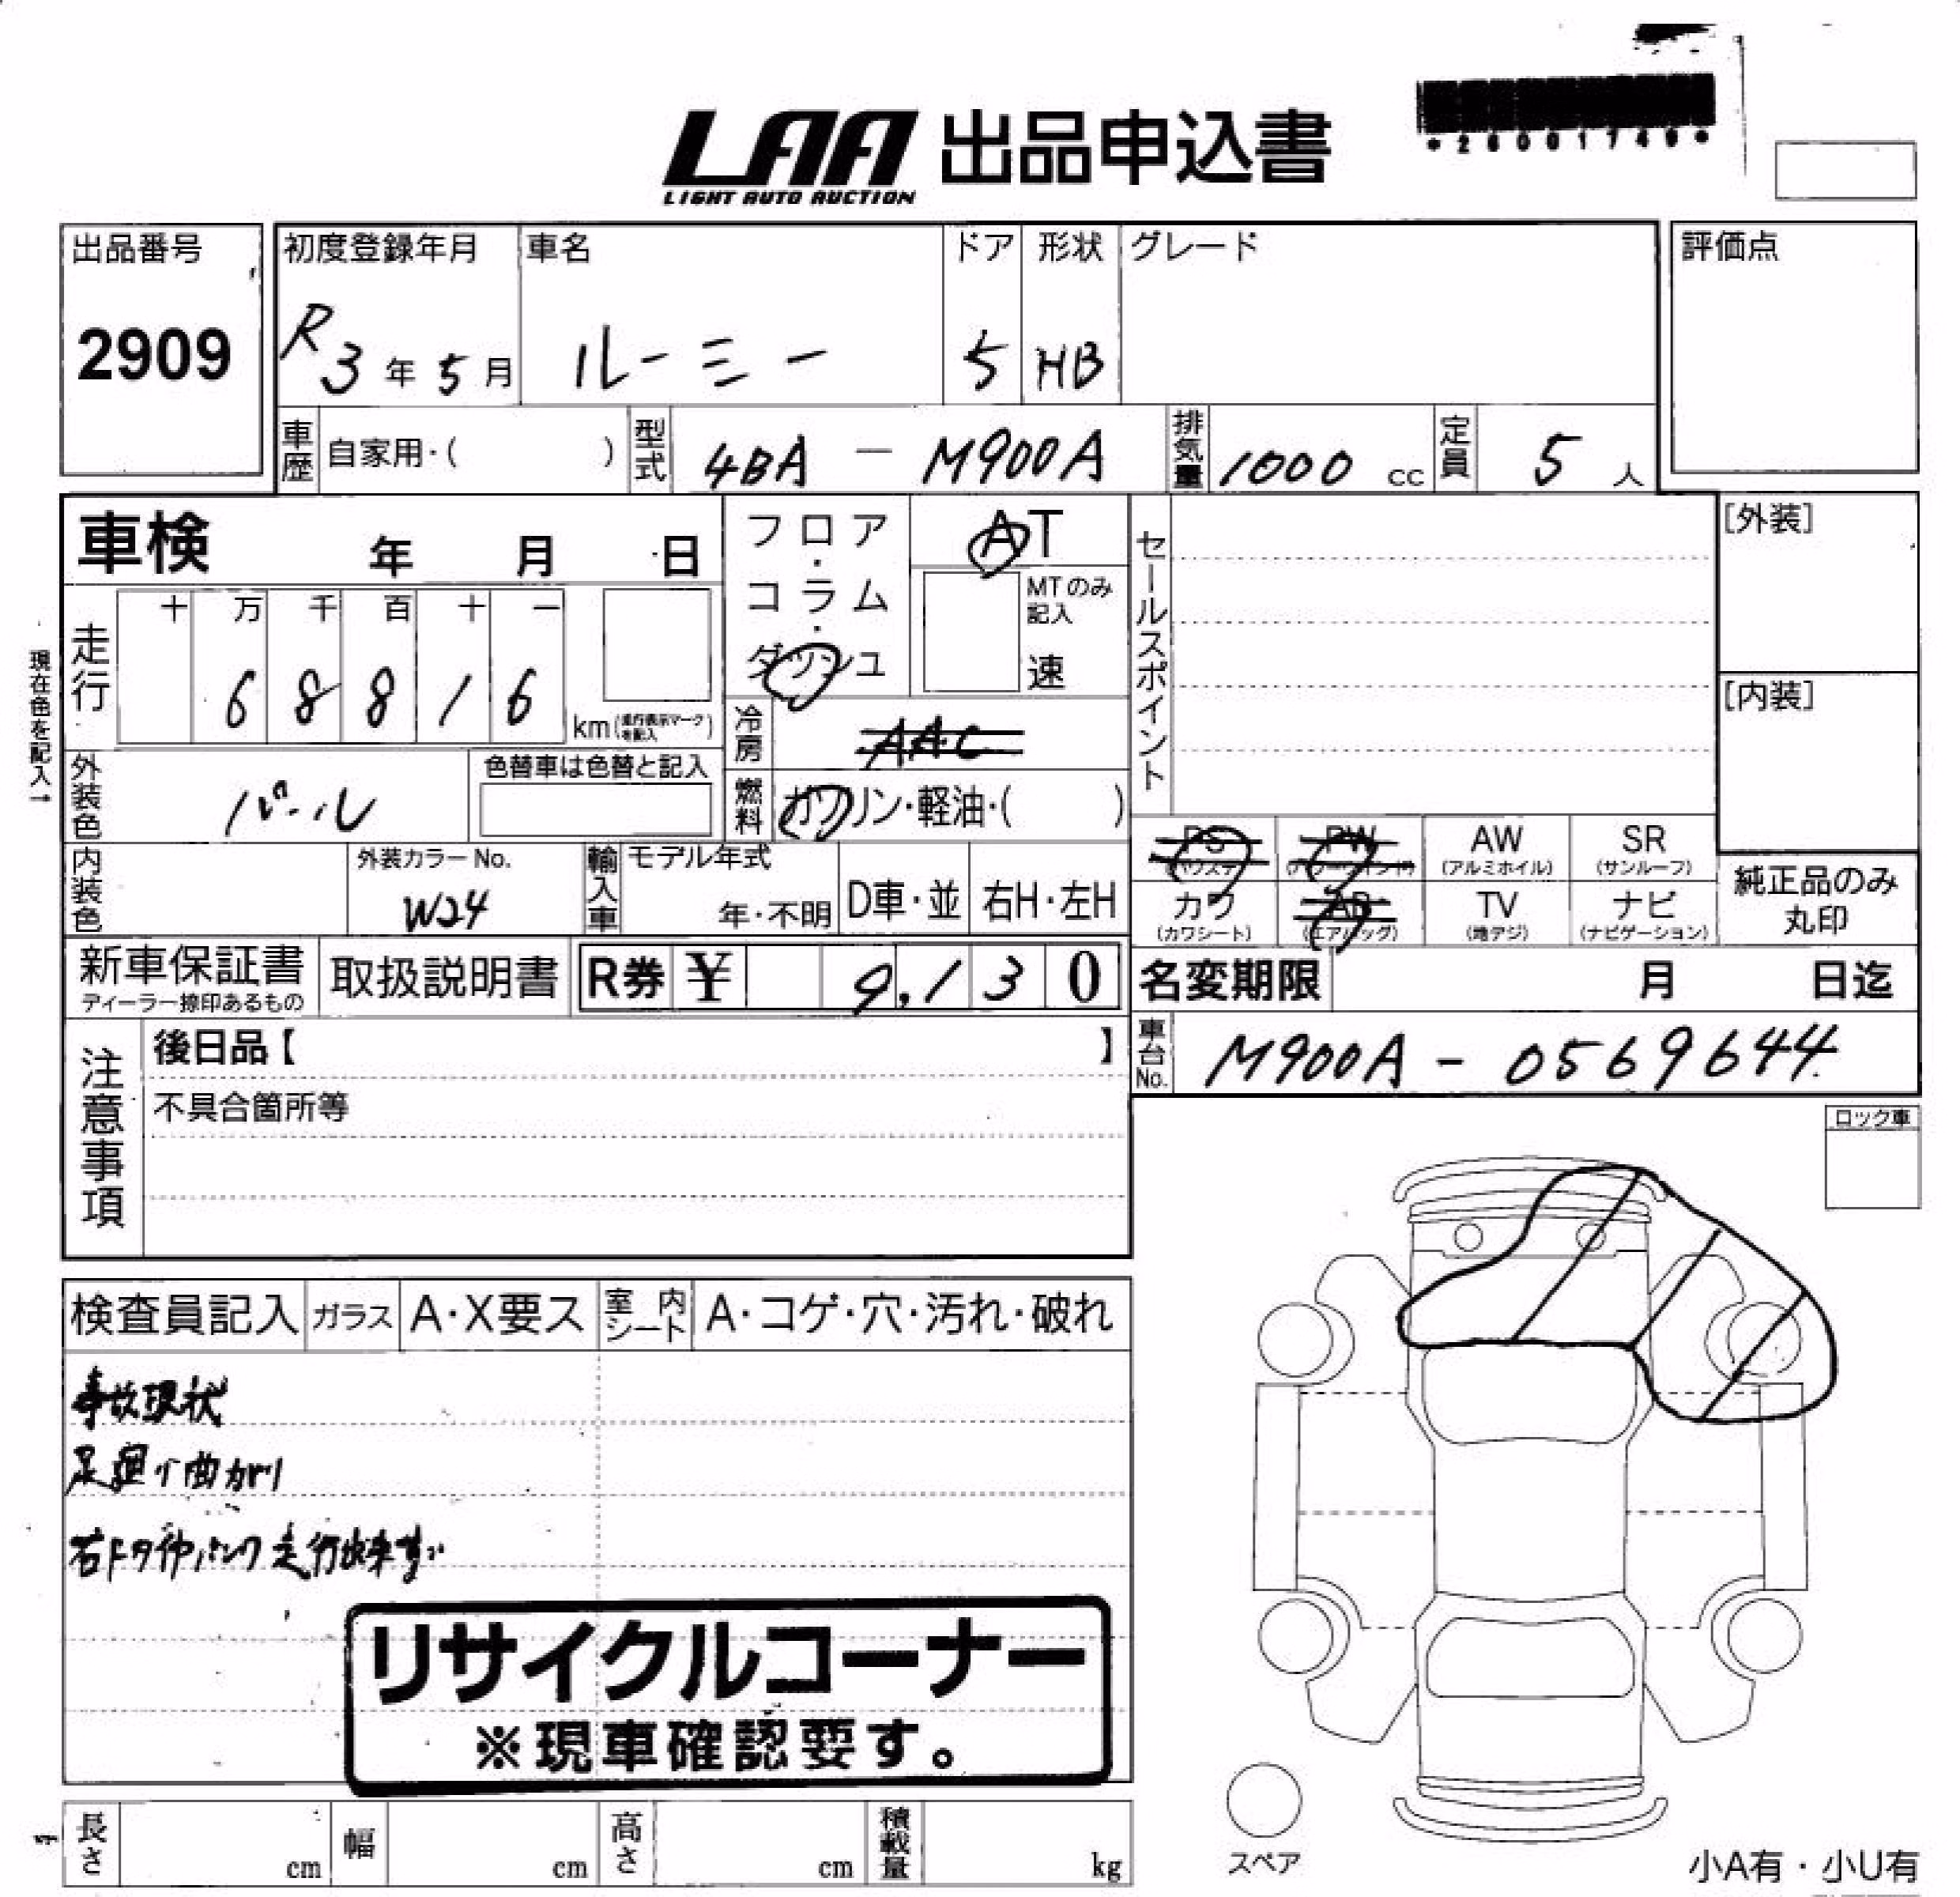 LAA 出品申込書
LIGHT AUTO AUCTION
出品番号 初度登録年月 車名 ドア 形状 グレード 評価点
2909 R3年5月 ルーミー 5 HB
車歴 自家用・( ) 型式 4BA - M900A 排気量 1000 cc 定員 5 人
車検 年 月 日
フロア・コラム・ダッシュ
AT
MTのみ記入
速
セールスポイント
[外装]
[内装]
現在色を記入→
走行 十 万 千 百 十 一
6 8 8 1 6 km (走行表示マークを記入)
冷房 AAC
外装色 パール 色替車は色替と記入
燃料 ガソリン・軽油・( )
内装色 外装カラーNo. W24
輸入車 モデル年式 年・不明 D車・並 右H・左H
PS (パワステ) PW (パワーウィンド) AW (アルミホイル) SR (サンルーフ)
カワ (カワシート) AB (エアバッグ) TV (地デジ) ナビ (ナビゲーション)
純正品のみ丸印
新車保証書 ディーラー捺印あるもの 取扱説明書 R券 ¥ 9,130
名変期限 月 日迄
車台No. M900A - 0569644
注意事項 後日品【 】
不具合箇所等
ロック車
検査員記入 ガラス A・X要ス 室内シート A・コゲ・穴・汚れ・破れ
事故現状
足廻り曲がり
右Fタイヤパンク走行出来ず
リサイクルコーナー
※現車確認要す。
長さ cm 幅 cm 高さ cm 積載量 kg
スペア
小A有・小U有